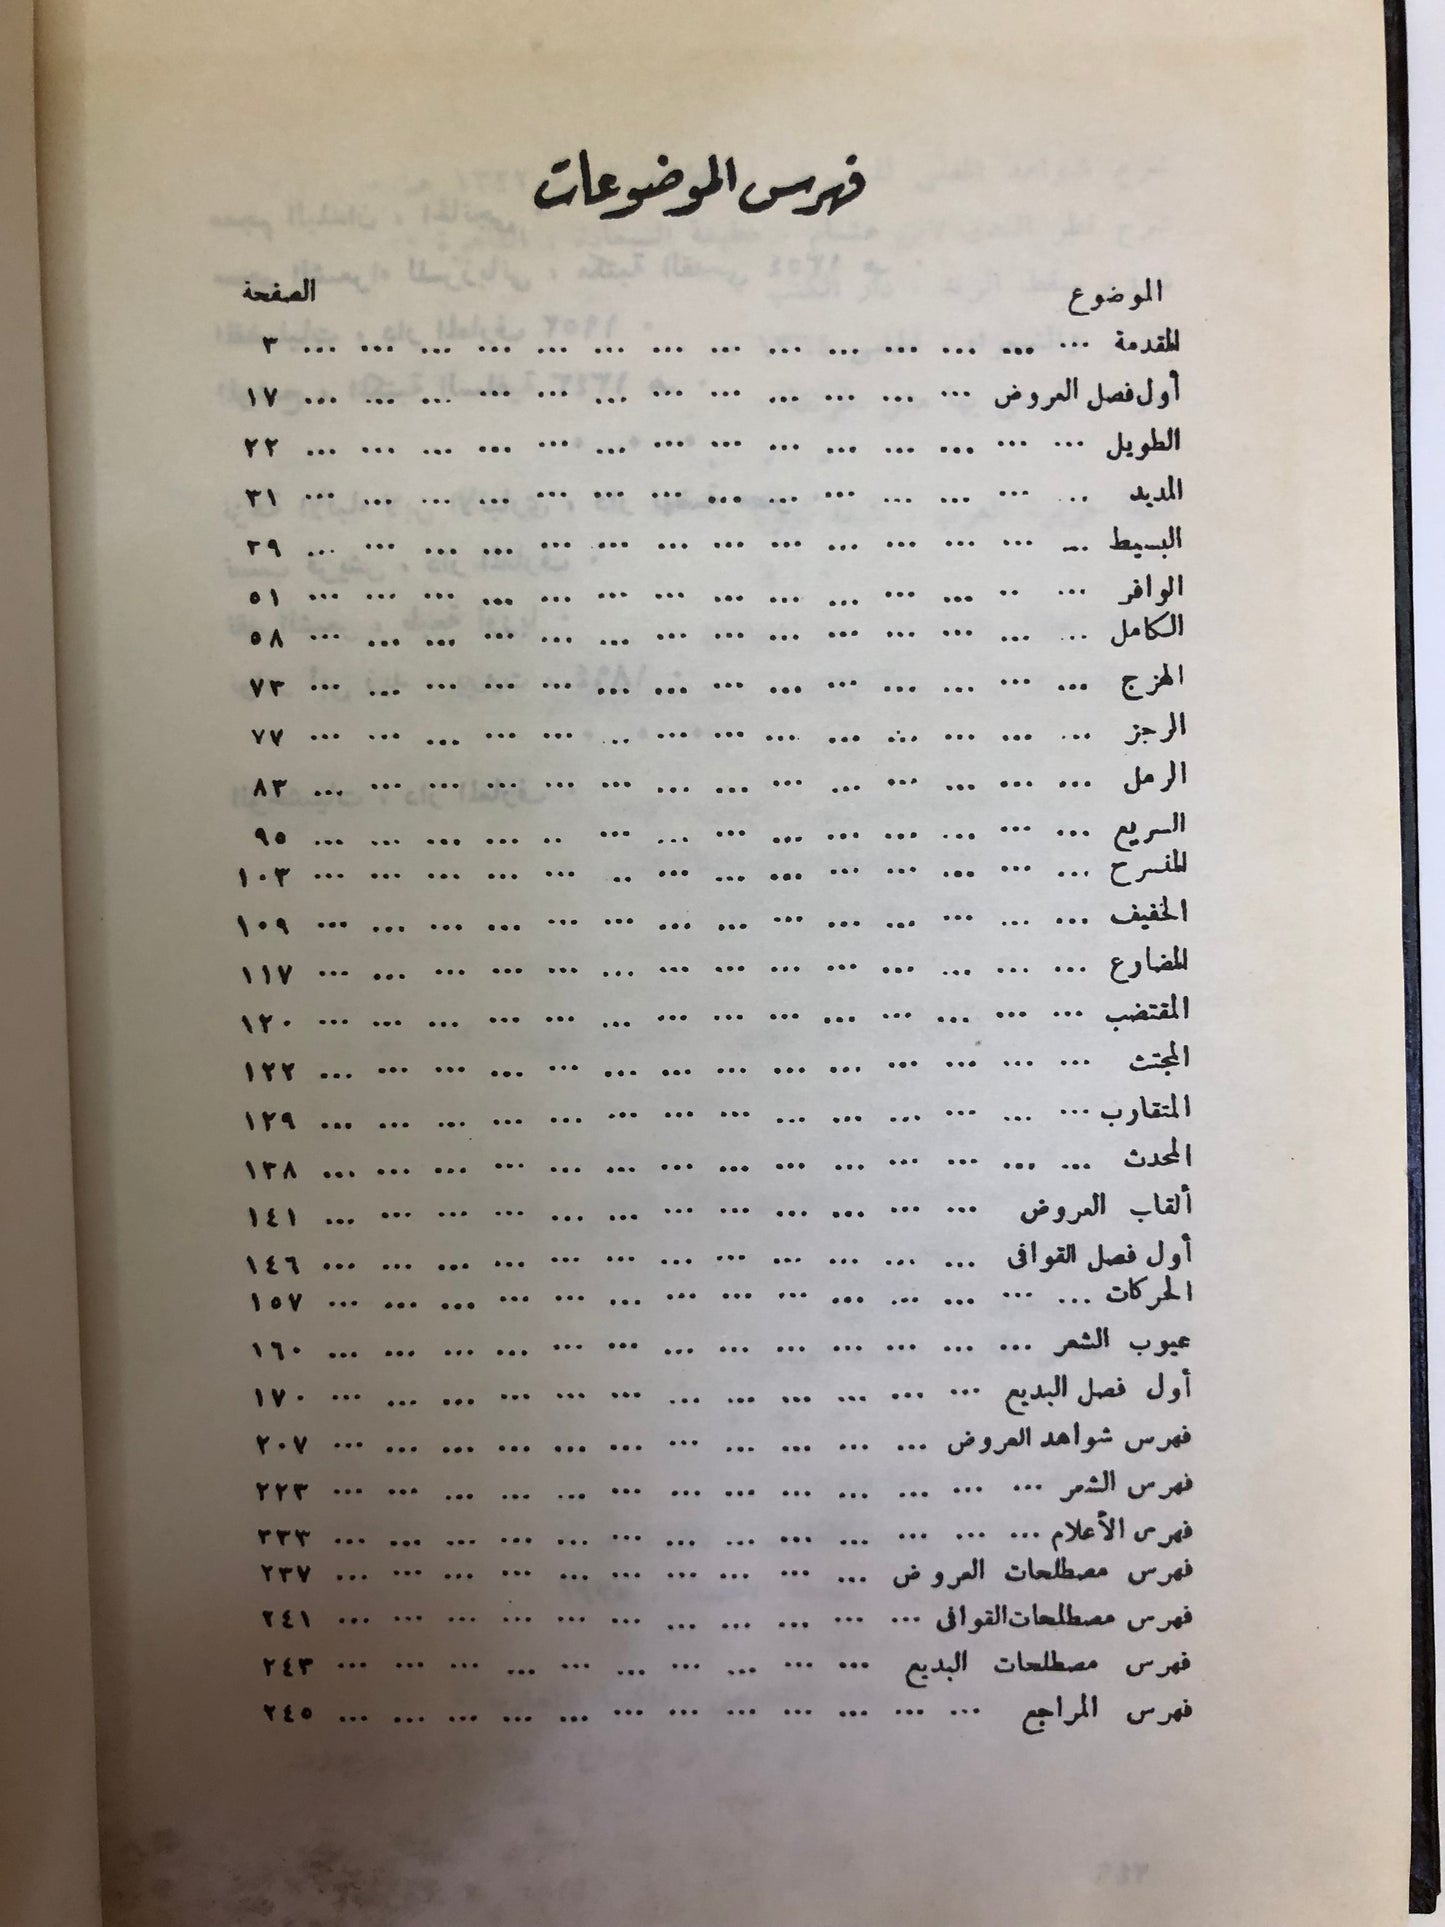 فهرس الموضوعات
الموضوع الصفحة
المقدمة ... ٣
أول فصل العروض ... ١٧
الطويل ... ٢٢
المديد ... ٣١
البسيط ... ٣٩
الوافر ... ٥١
الكامل ... ٥٨
الهزج ... ٧٣
الرجز ... ٧٧
الرمل ... ٨٣
السريع ... ٩٥
المنسرح ... ١٠٣
الخفيف ... ١٠٩
المضارع ... ١١٧
المقتضب ... ١٢٠
المجتث ... ١٢٢
المتقارب ... ١٢٩
المحدث ... ١٣٨
ألقاب العروض ... ١٤١
أول فصل القوافى ... ١٤٦
الحركات ... ١٥٧
عيوب الشعر ... ١٦٠
أول فصل البديع ... ١٧٠
فهرس شواهد العروض ... ٢٠٧
فهرس الشعر ... ٢٢٣
فهرس الأعلام ... ٢٣٣
فهرس مصطلحات العروض ... ٢٣٧
فهرس مصطلحات القوافى ... ٢٤١
فهرس مصطلحات البديع ... ٢٤٣
فهرس المراجع ... ٢٤٥